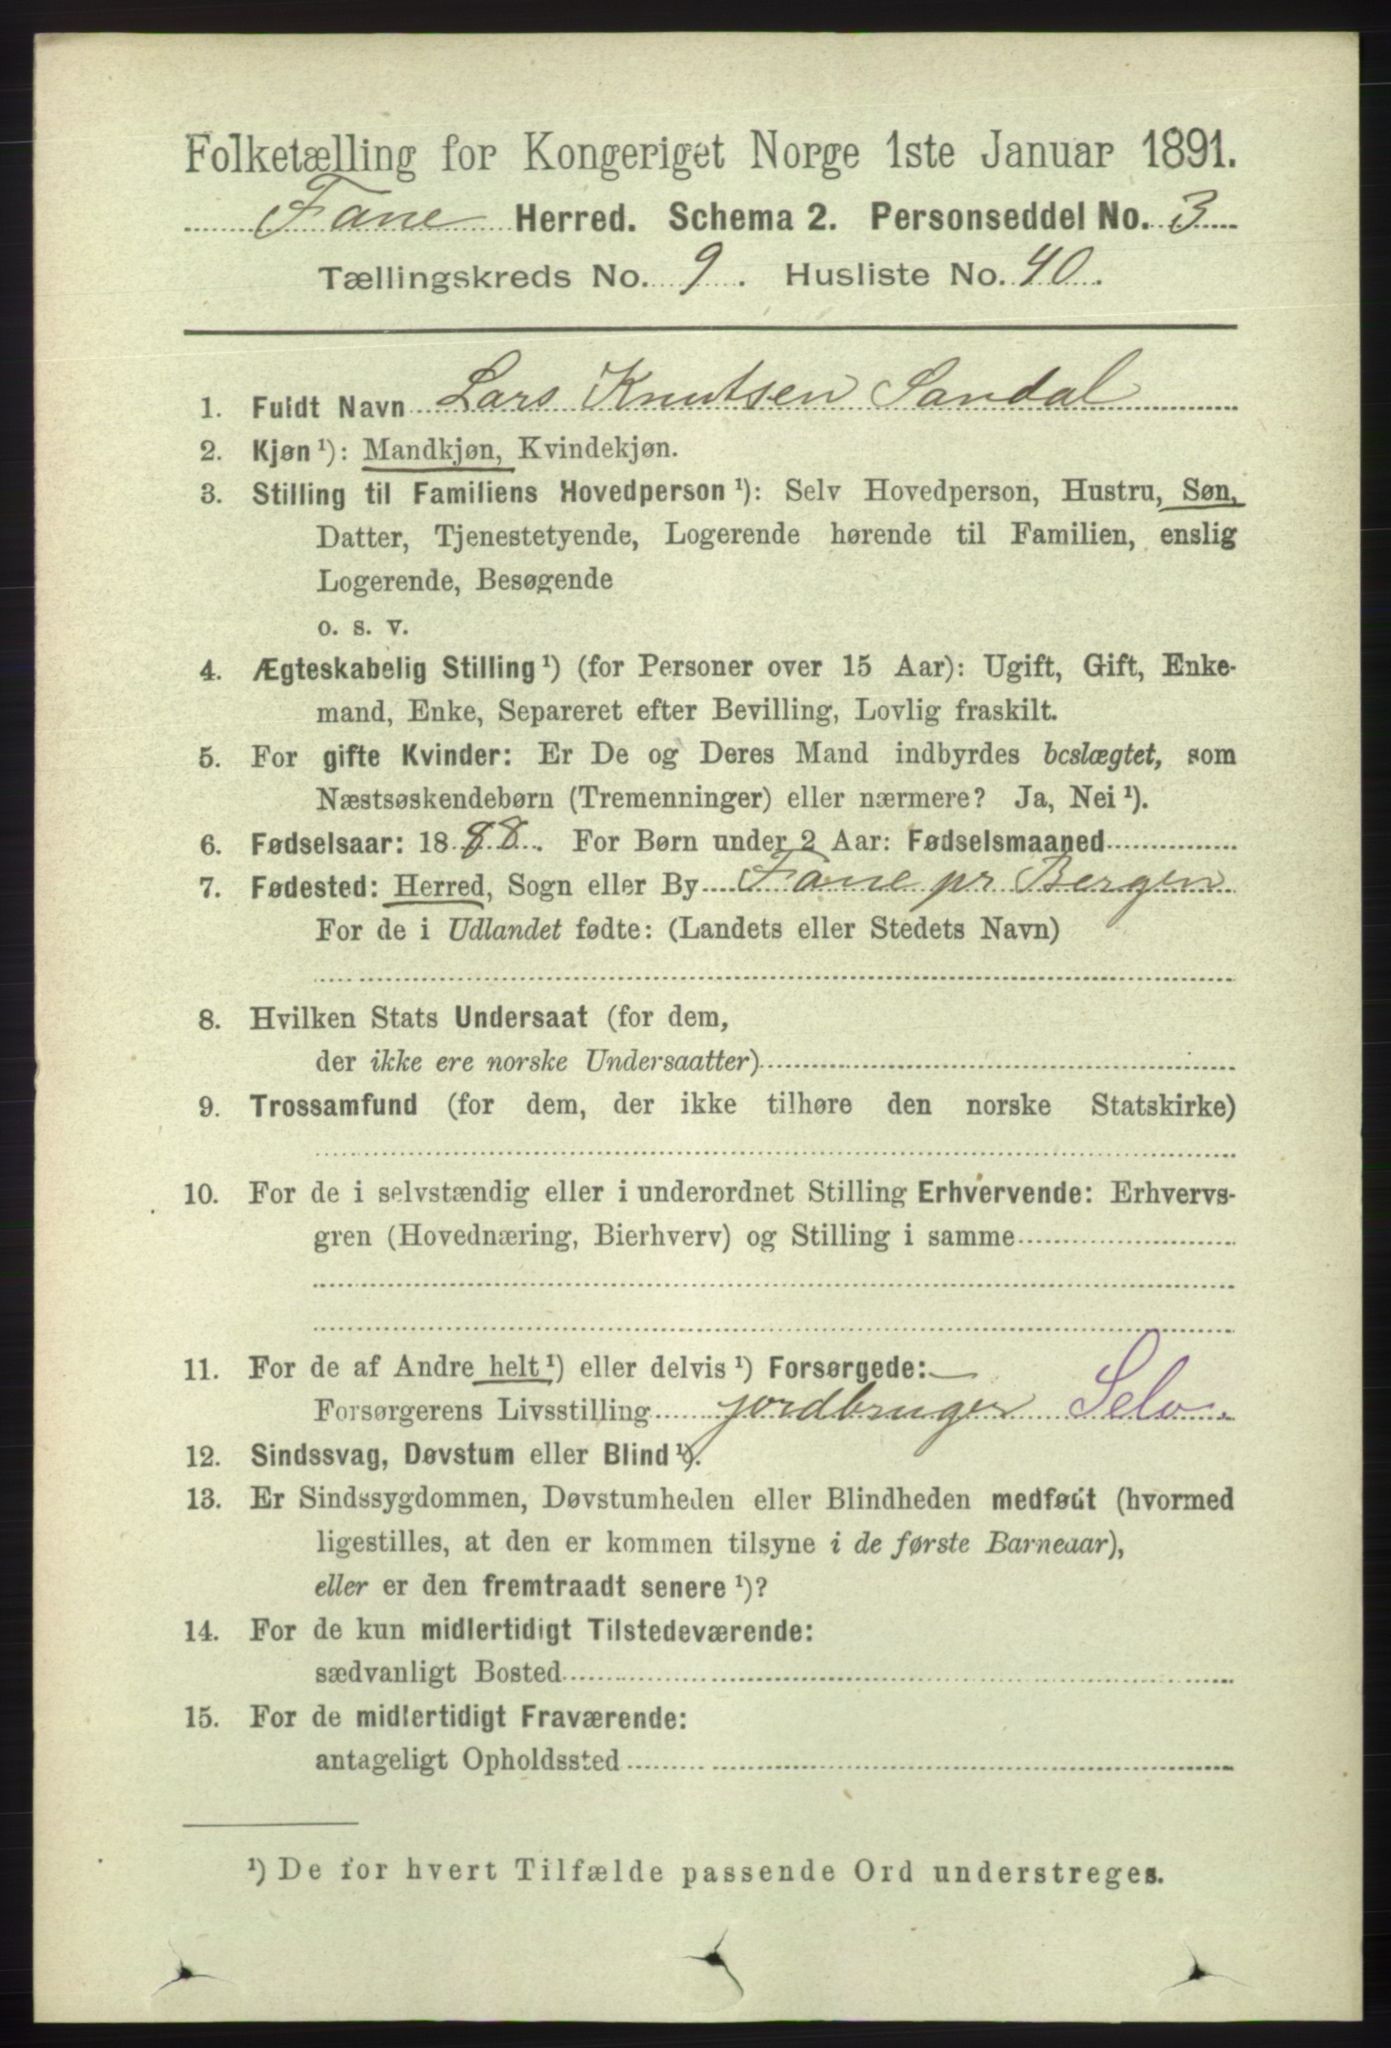 Folketælling for Kongeriget Norge 1ste Januar 1891.
Fane Herred. Schema 2. Personseddel No. 3
Tællingskreds No. 9. Husliste No. 40.
1. Fuldt Navn Lars Knutsen Sandal
2. Kjøn ¹): Mandkjøn, Kvindekjøn.
3. Stilling til Familiens Hovedperson ¹): Selv Hovedperson, Hustru, Søn,
Datter, Tjenestetyende, Logerende hørende til Familien, enslig
Logerende, Besøgende
o. s. v.
4. Ægteskabelig Stilling ¹) (for Personer over 15 Aar): Ugift, Gift, Enke-
mand, Enke, Separeret efter Bevilling, Lovlig fraskilt.
5. For gifte Kvinder: Er De og Deres Mand indbyrdes beslægtet, som
Næstsøskendebørn (Tremenninger) eller nærmere? Ja, Nei ¹).
6. Fødselsaar: 1888. For Børn under 2 Aar: Fødselsmaaned
7. Fødested: Herred, Sogn eller By Fane pr Bergen
For de i Udlandet fødte: (Landets eller Stedets Navn)
8. Hvilken Stats Undersaat (for dem,
der ikke ere norske Undersaatter)
9. Trossamfund (for dem, der ikke tilhøre den norske Statskirke)
10. For de i selvstændig eller i underordnet Stilling Erhvervende: Erhvervs-
gren (Hovednæring, Bierhverv) og Stilling i samme
11. For de af Andre helt ¹) eller delvis ¹) Forsørgede:
Forsørgerens Livsstilling jordbruger Selv.
12. Sindssvag, Døvstum eller Blind ¹).
13. Er Sindssygdommen, Døvstumheden eller Blindheden medfødt (hvormed
ligestilles, at den er kommen tilsyne i de første Barneaar),
eller er den fremtraadt senere ¹)?
14. For de kun midlertidigt Tilstedeværende:
sædvanligt Bosted
15. For de midlertidigt Fraværende:
antageligt Opholdssted
¹) De for hvert Tilfælde passende Ord understreges.